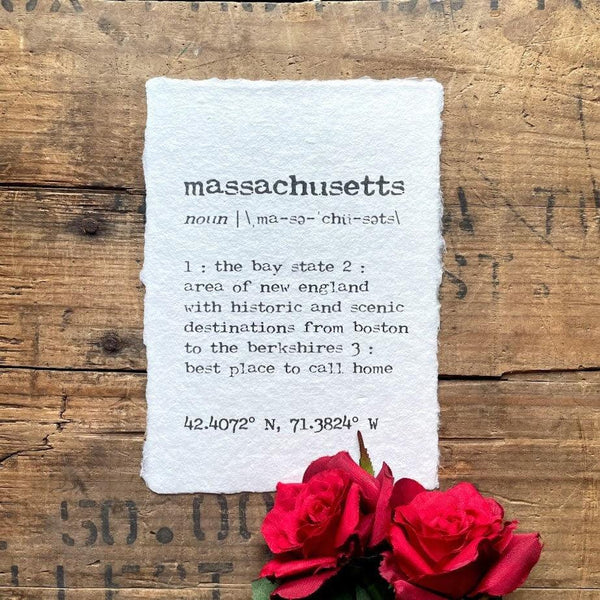 massachusetts
noun | \ˌma-sə-ˈchü-səts\
1 : the bay state 2 :
area of new england
with historic and scenic
destinations from boston
to the berkshires 3 :
best place to call home
42.4072° N, 71.3824° W